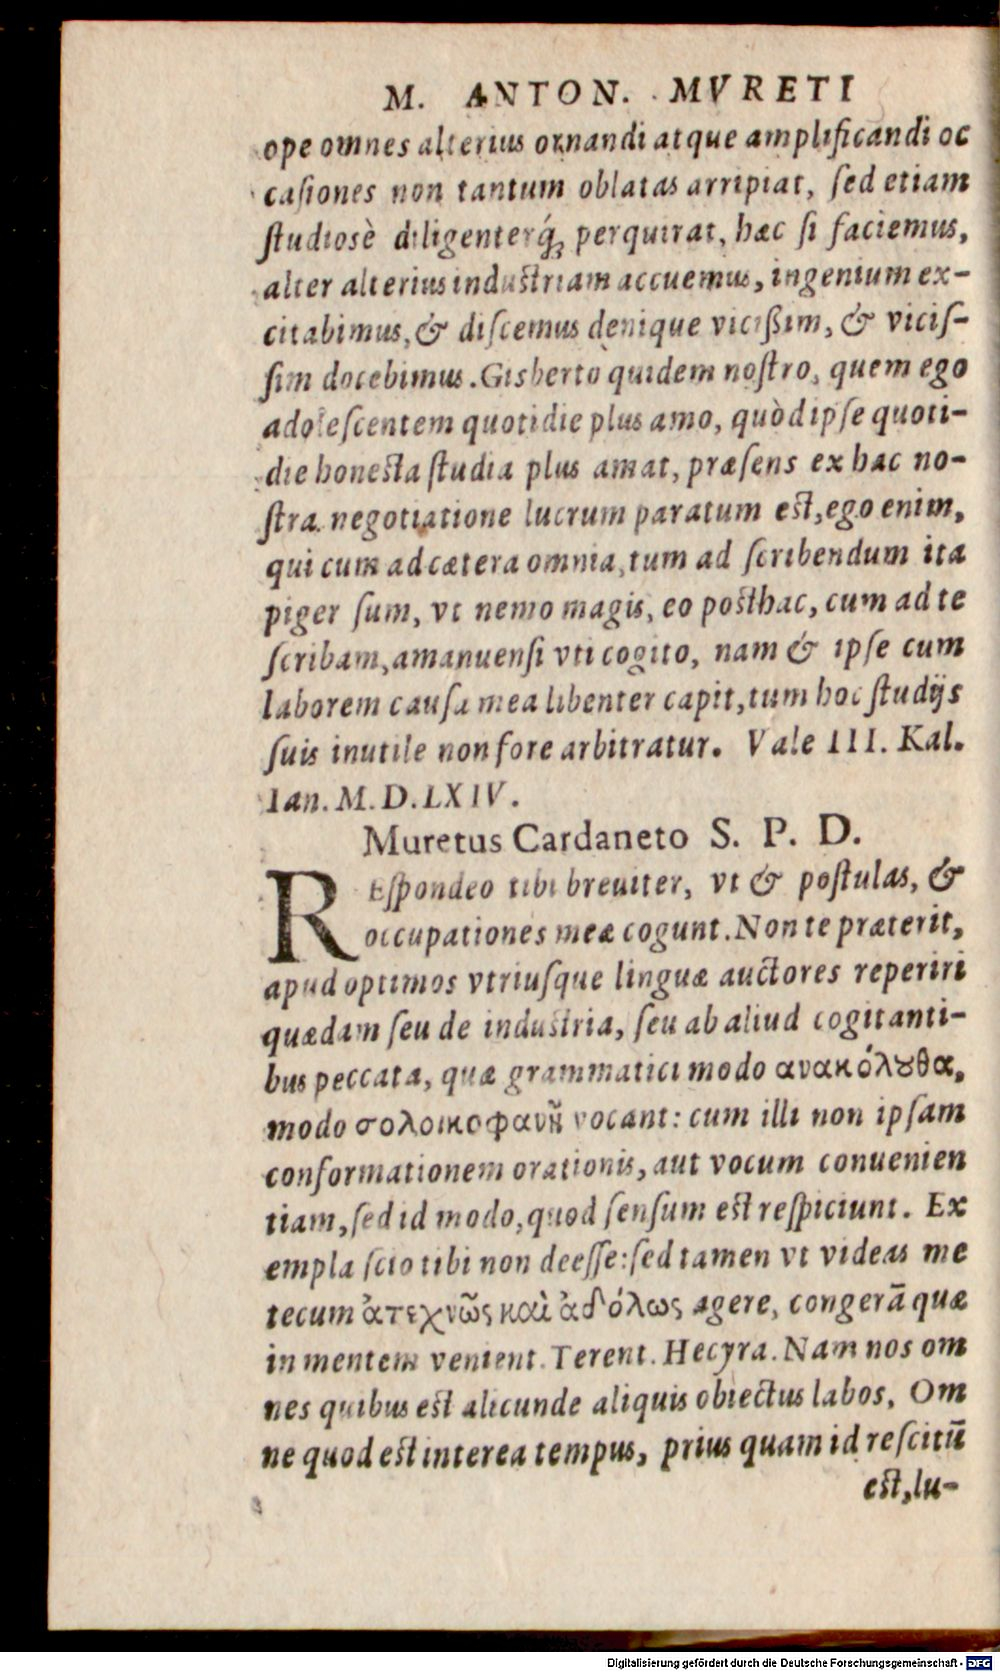 M. ANTON. MVRETI
ope omnes alterius ornandi atque amplificandi oc
casiones non tantum oblatas arripiat, sed etiam
studiosè diligenterq́; perquirat, hæc si faciemus,
alter alterius industriam accuemus, ingenium ex-
citabimus, & discemus denique vicißim, & vicis-
sim docebimus. Gisberto quidem nostro, quem ego
adolescentem quotidie plus amo, quòd ipse quoti-
die honesta studia plus amat, præsens ex hac no-
stra negotiatione lucrum paratum est, ego enim,
qui cum ad cætera omnia, tum ad scribendum ita
piger sum, vt nemo magis, eo posthac, cum ad te
scribam, amanuensi vti cogito, nam & ipse cum
laborem causa mea libenter capit, tum hoc studijs
suis inutile non fore arbitratur. Vale III. Kal.
Ian. M. D. LXIV.
Muretus Cardaneto S. P. D.
REspondeo tibi breuiter, vt & postulas, &
occupationes meæ cogunt. Non te præterit,
apud optimos vtriusque linguæ auctores reperiri
quædam seu de industria, seu ab aliud cogitanti-
bus peccata, quæ grammatici modo ανακόλȣθα,
modo σολοικοφανῆ vocant: cum illi non ipsam
conformationem orationis, aut vocum conuenien
tiam, sed id modo, quod sensum est respiciunt. Ex
empla scio tibi non deesse: sed tamen vt videas me
tecum ἀτεχνῶς καὶ ἀδόλως agere, congerā quæ
in mentem venient. Terent. Hecyra. Nam nos om
nes quibus est alicunde aliquis obiectus labos, Om
ne quod est interea tempus, prius quam id rescitū
est, lu-
Digitalisierung gefördert durch die Deutsche Forschungsgemeinschaft - DFG